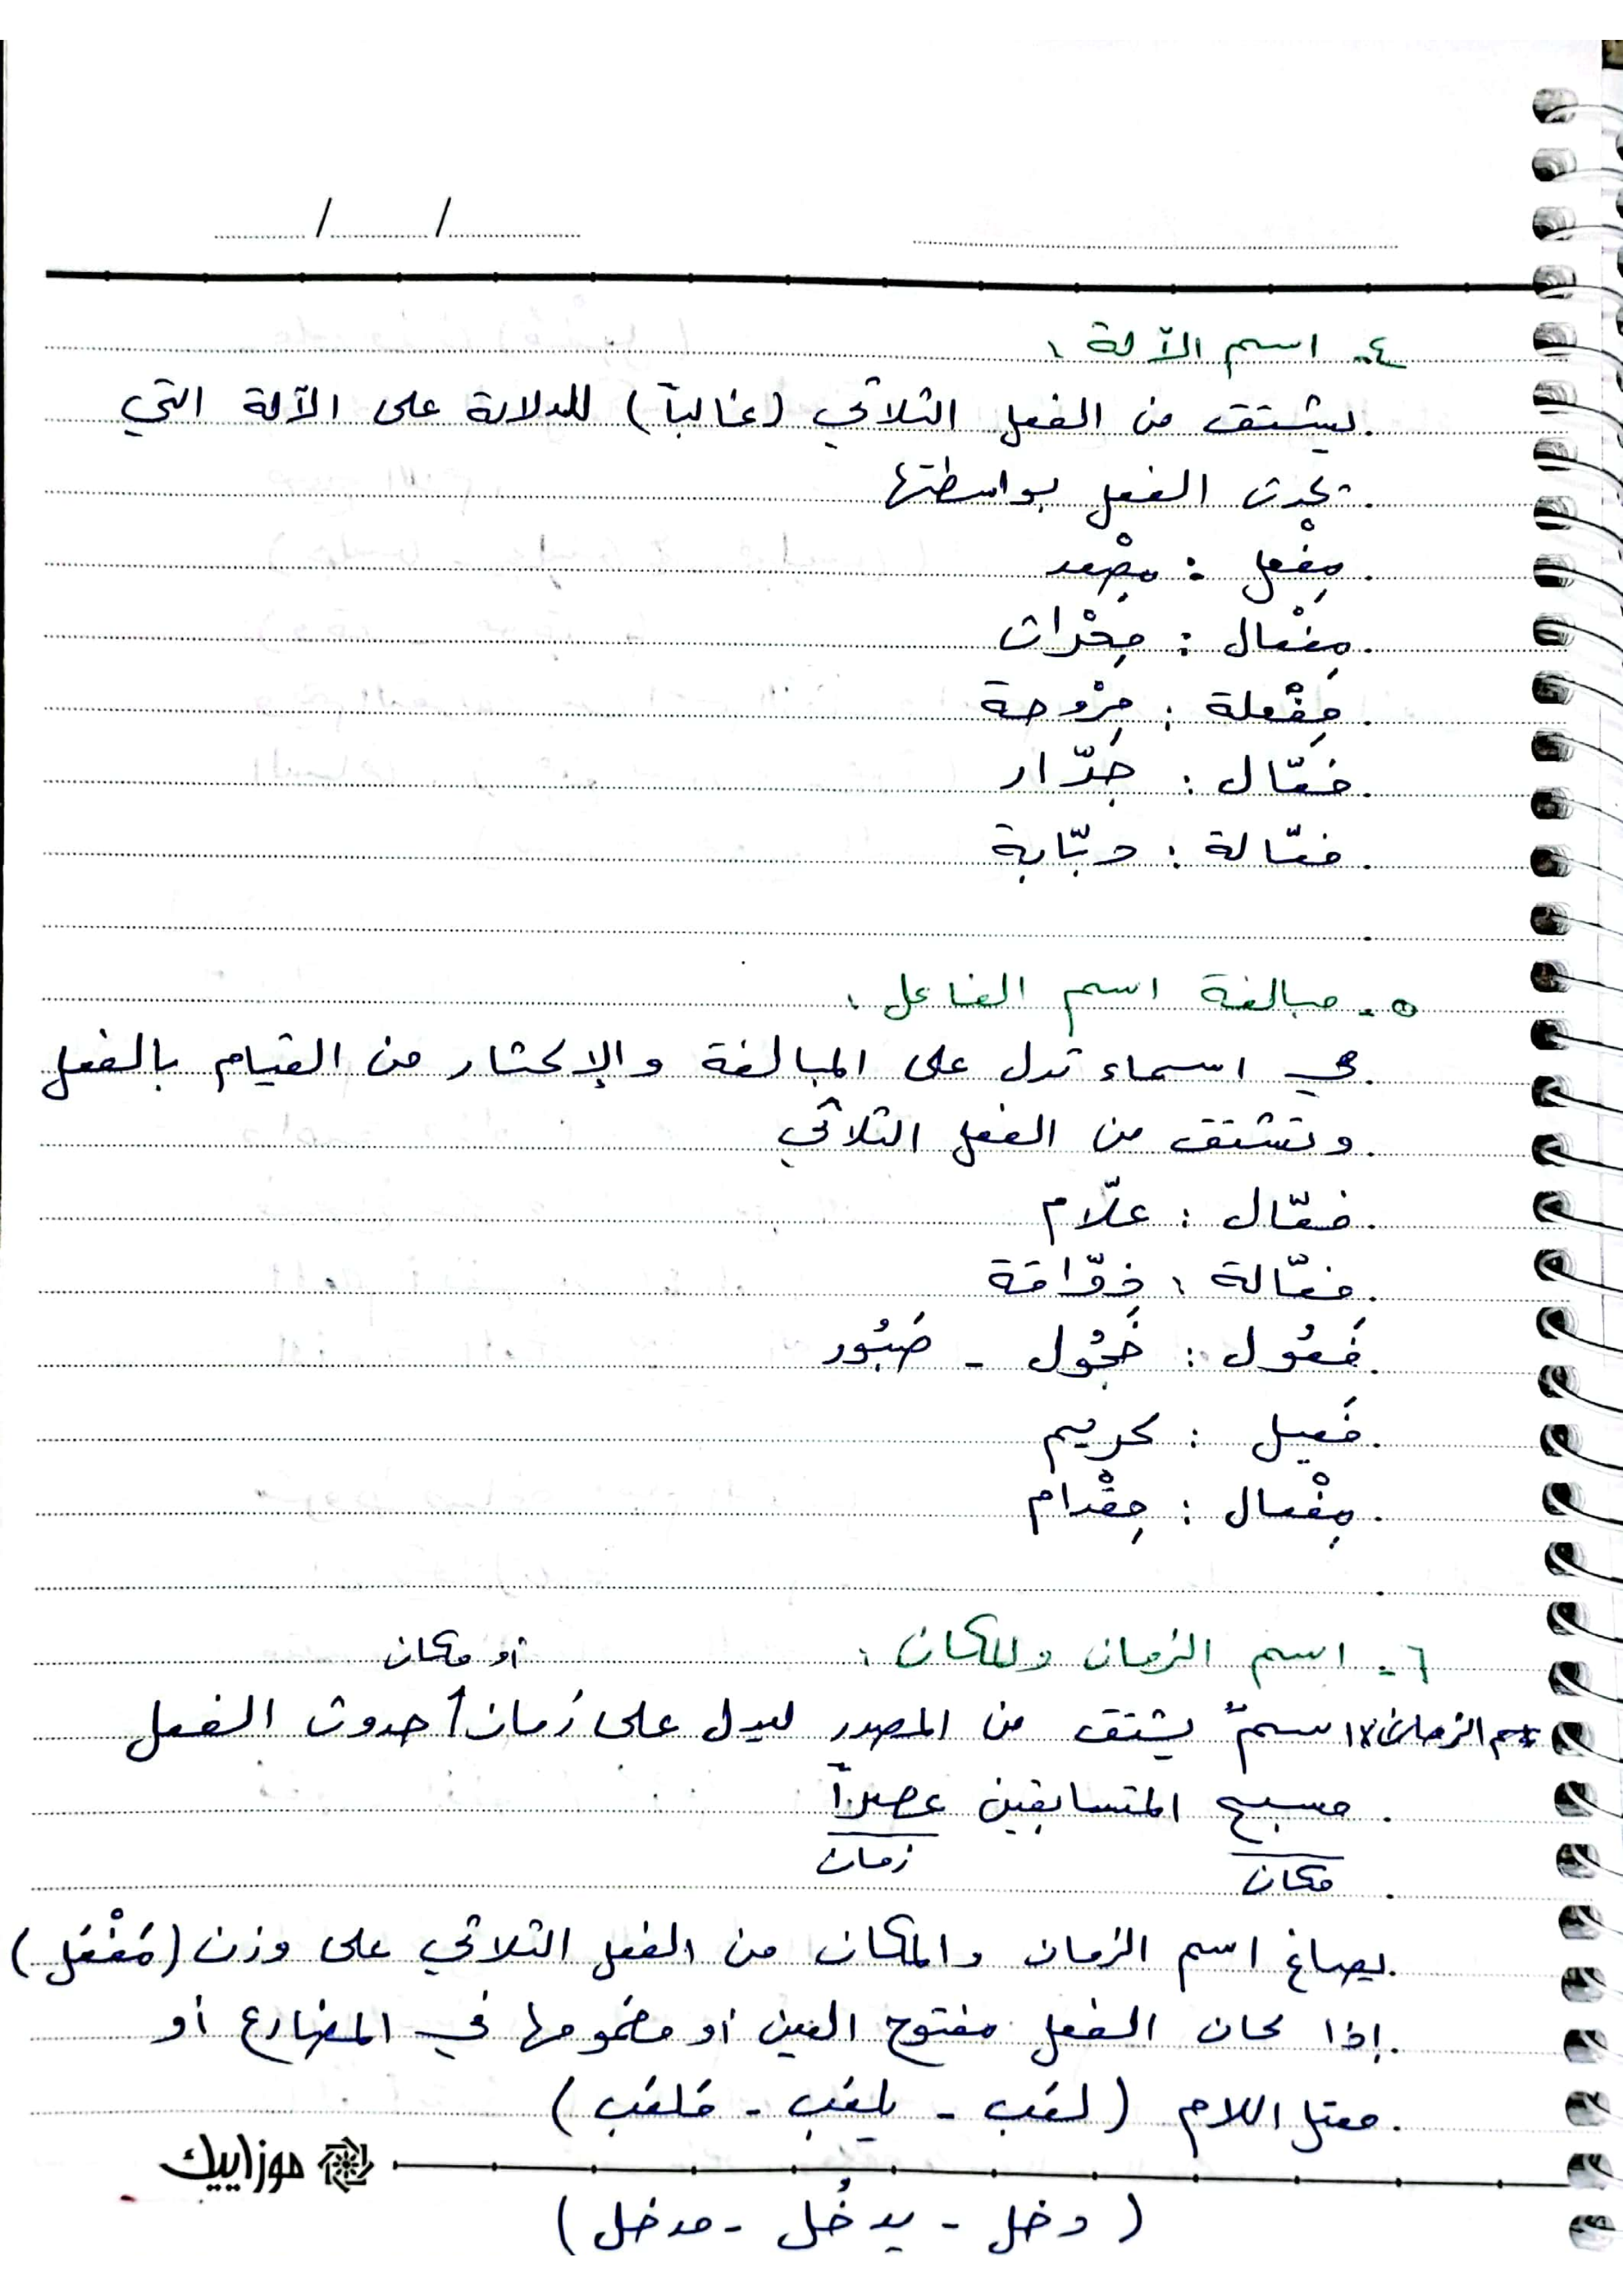 / /
٤- اسم الآلة :
يشتق من الفعل الثلاثي (غالباً) للدلالة على الآلة التي
يحدث الفعل بواسطتها
مِفْعل : مِصْعد
مِفْعال : مِحْراث
مِفْعلة : مِرْوحة
فعّال : جَرّار
فعّالة : دبّابة
٥- مبالغة اسم الفاعل :
هي اسماء تدل على المبالغة والإكثار من القيام بالفعل
وتشتق من الفعل الثلاثي
فعّال : علّام
فعّالة : ذوّاقة
فَعُول : خَجُول - صَبُور
فَعيل : كريم
مِفْعال : مِقْدام
٦- اسم الزمان والمكان :
أو مكان
اسم الزمان: اسمٌ يشتق من المصدر ليدل على زمان حدوث الفعل
مسبح المتسابقين عصراً
زمان
مكان
يصاغ اسم الزمان والمكان من الفعل الثلاثي على وزن (مَفْعَل)
إذا كان الفعل مفتوح العين أو مضمومها في المضارع أو
معتل اللام (لعَب - يلعَب - مَلعَب)
موزاييك
(دخل - يدخُل - مدخل)